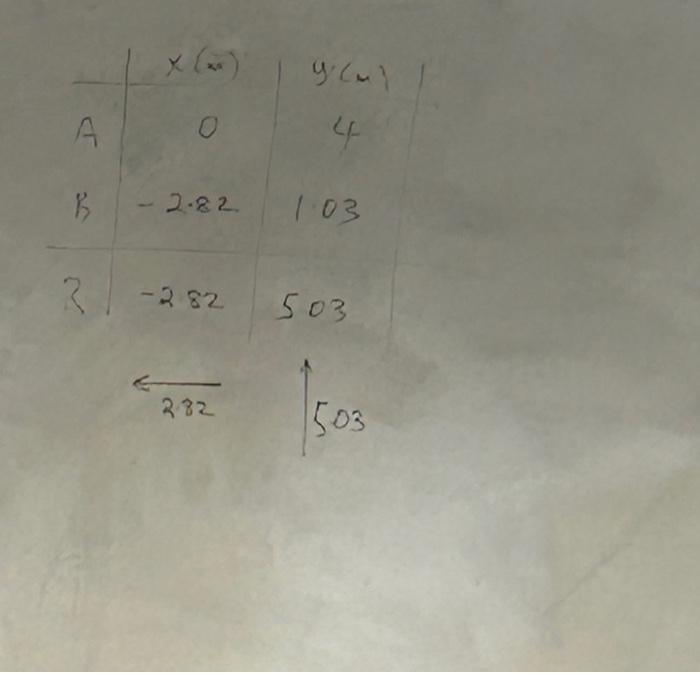 x (m) y (m)
A 0 4
B -2.82 1.03
R -2.82 5.03
2.82
5.03